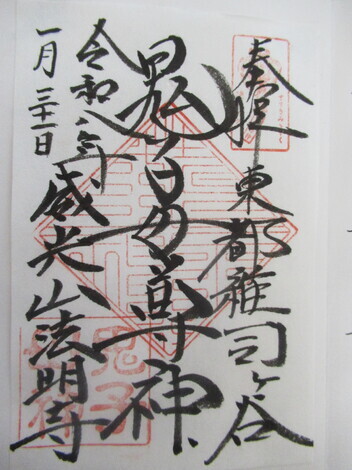 奉拝
東都雑司ヶ谷
鬼子母尊神
令和八年
威光山法明寺
一月三十一日